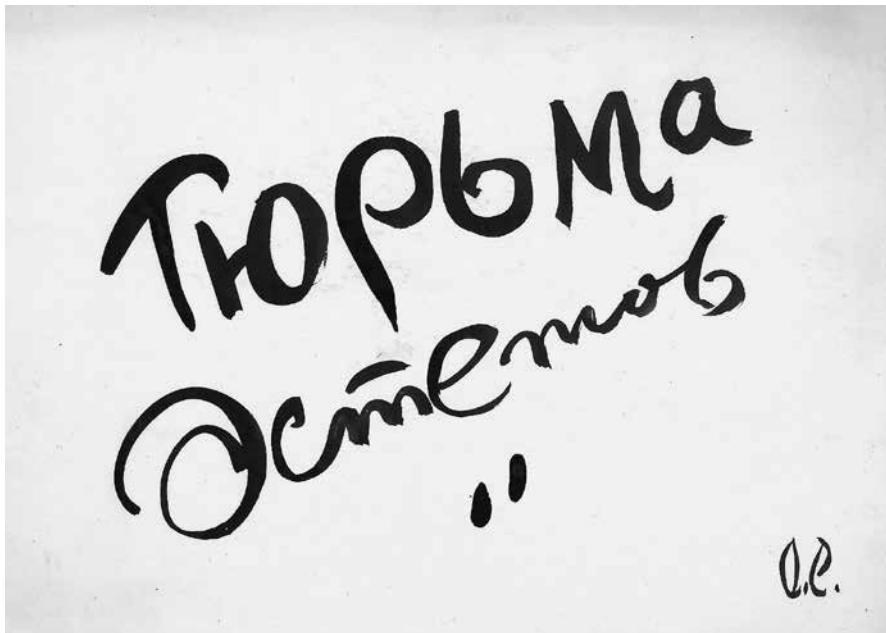 Тюрьма
Эстетов
"
О.С.